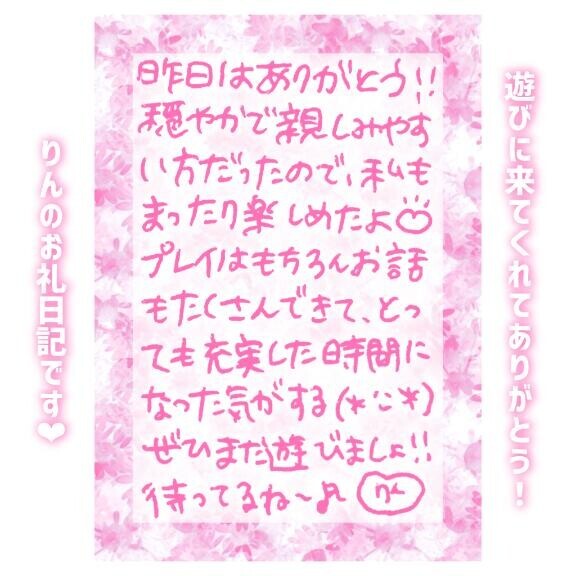 遊びに来てくれてありがとう！
昨日はありがとう!!
穏やかで親しみやす
い方だったので、私も
まったり楽しめたよ
プレイはもちろんお話
もたくさんできて、とっ
ても充実した時間に
なった気がする(*´ㄷ`*)
ぜひまた遊びましょ!!
待ってるね～♪ りん
りんのお礼日記です❤